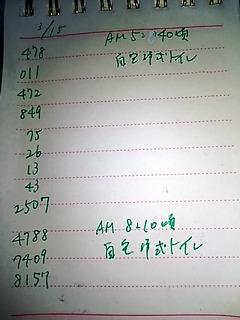 3/15
478 AM 5:40頃
011 自宅洋式トイレ
472
849
75
26
13
43
2507
4788 AM 8:10頃
7409 自宅洋式トイレ
8157